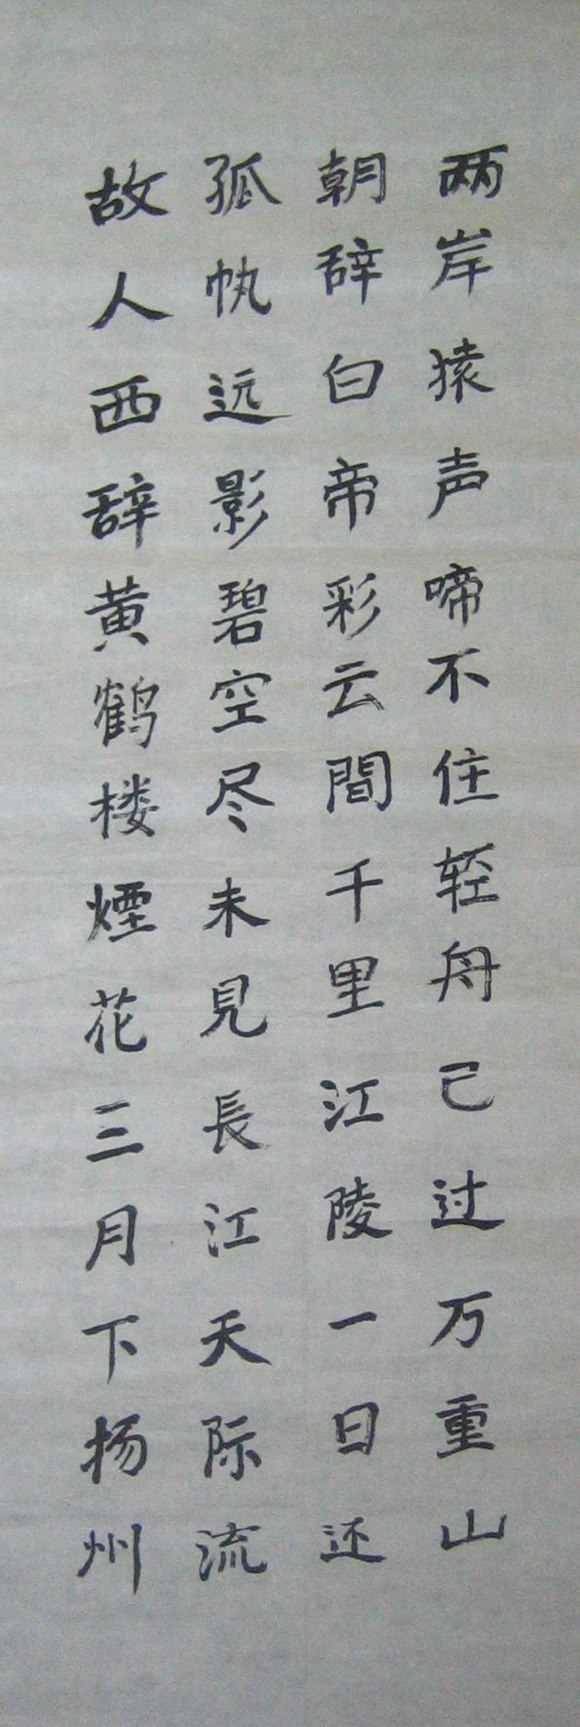 故人西辞黄鹤楼煙花三月下扬州
孤帆远影碧空尽未見長江天际流
朝辞白帝彩云間千里江陵一日还
两岸猿声啼不住轻舟已过万重山